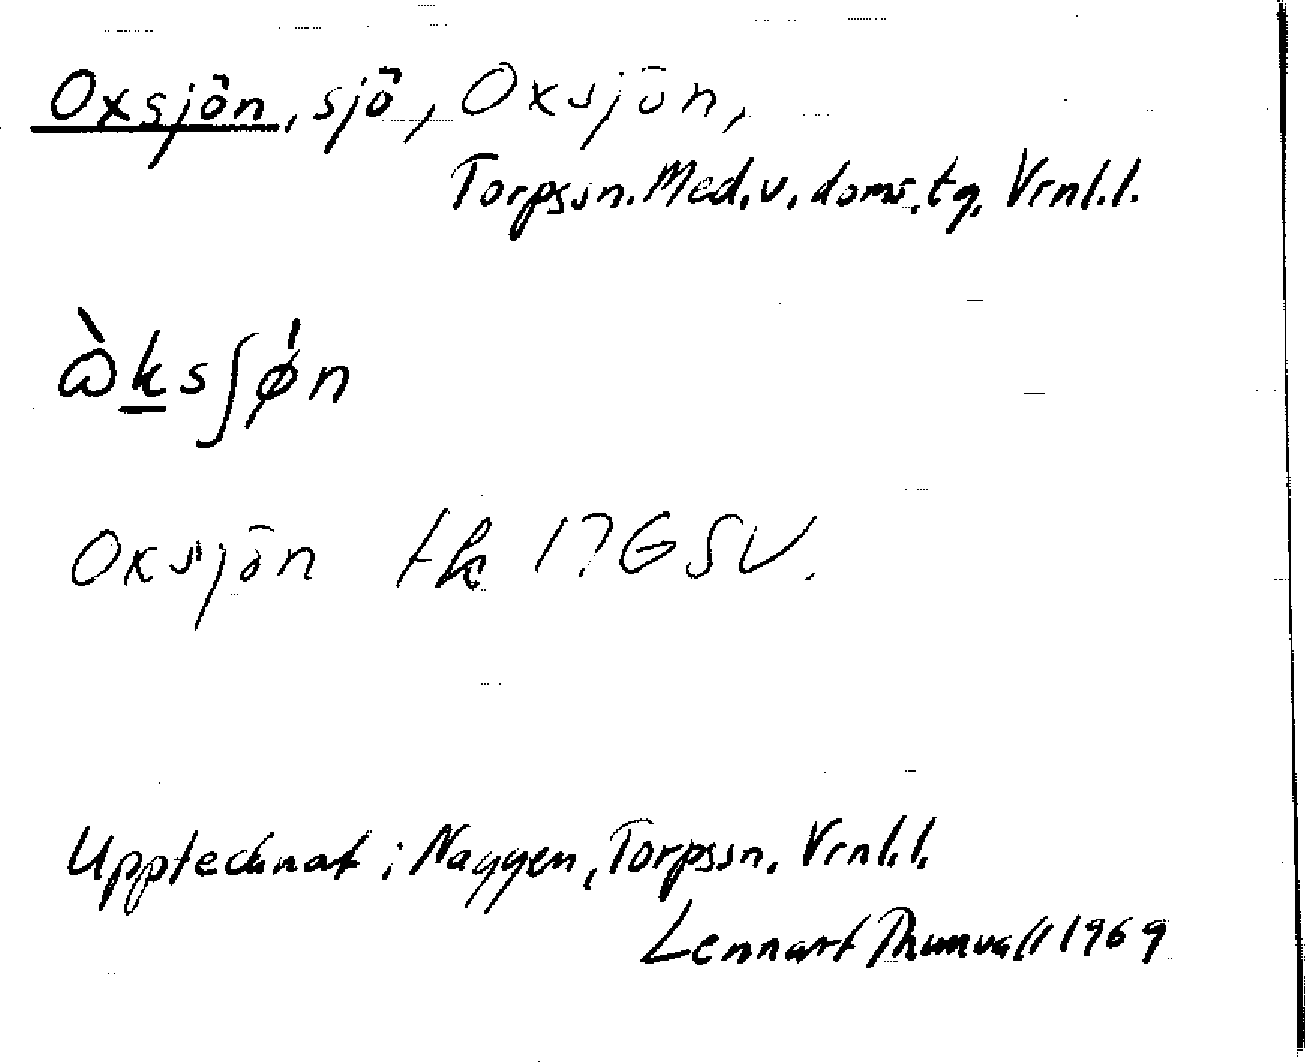 Oxsjön, sjö, Oxsjön,
Torpssn. Med. v. doms. tg. Vrnl. l.
ὼksʃǿn
Oxsjön tk 17G SV.
Upptecknat i Naggen, Torpssn. Vrnl. l.
Lennart Thunvall 1969